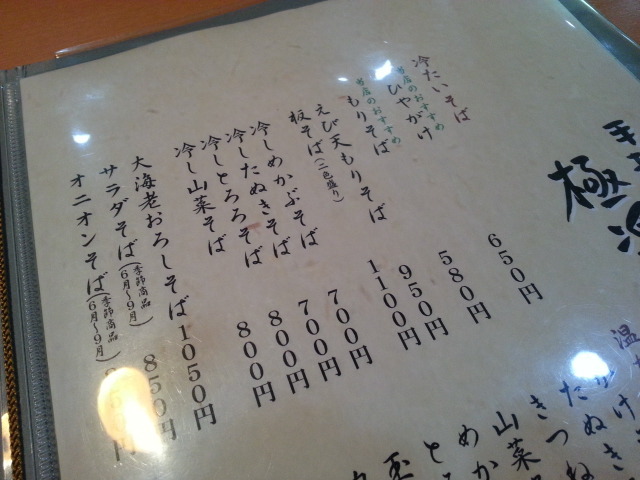 手
極
冷たいそば
当店のおすすめ
ひやがけ 650円
当店のおすすめ
もりそば 580円
えび天もりそば 950円
板そば(二色盛り) 1100円
冷しめかぶそば 700円
冷したぬきそば 700円
冷しとろろそば 800円
冷し山菜そば 800円
大海老おろしそば 1050円
サラダそば(季節商品 6月〜9月) 850円
オニオンそば(季節商品 6月〜9月) 円
温
たぬき
きつね
山菜
めか
と
玉